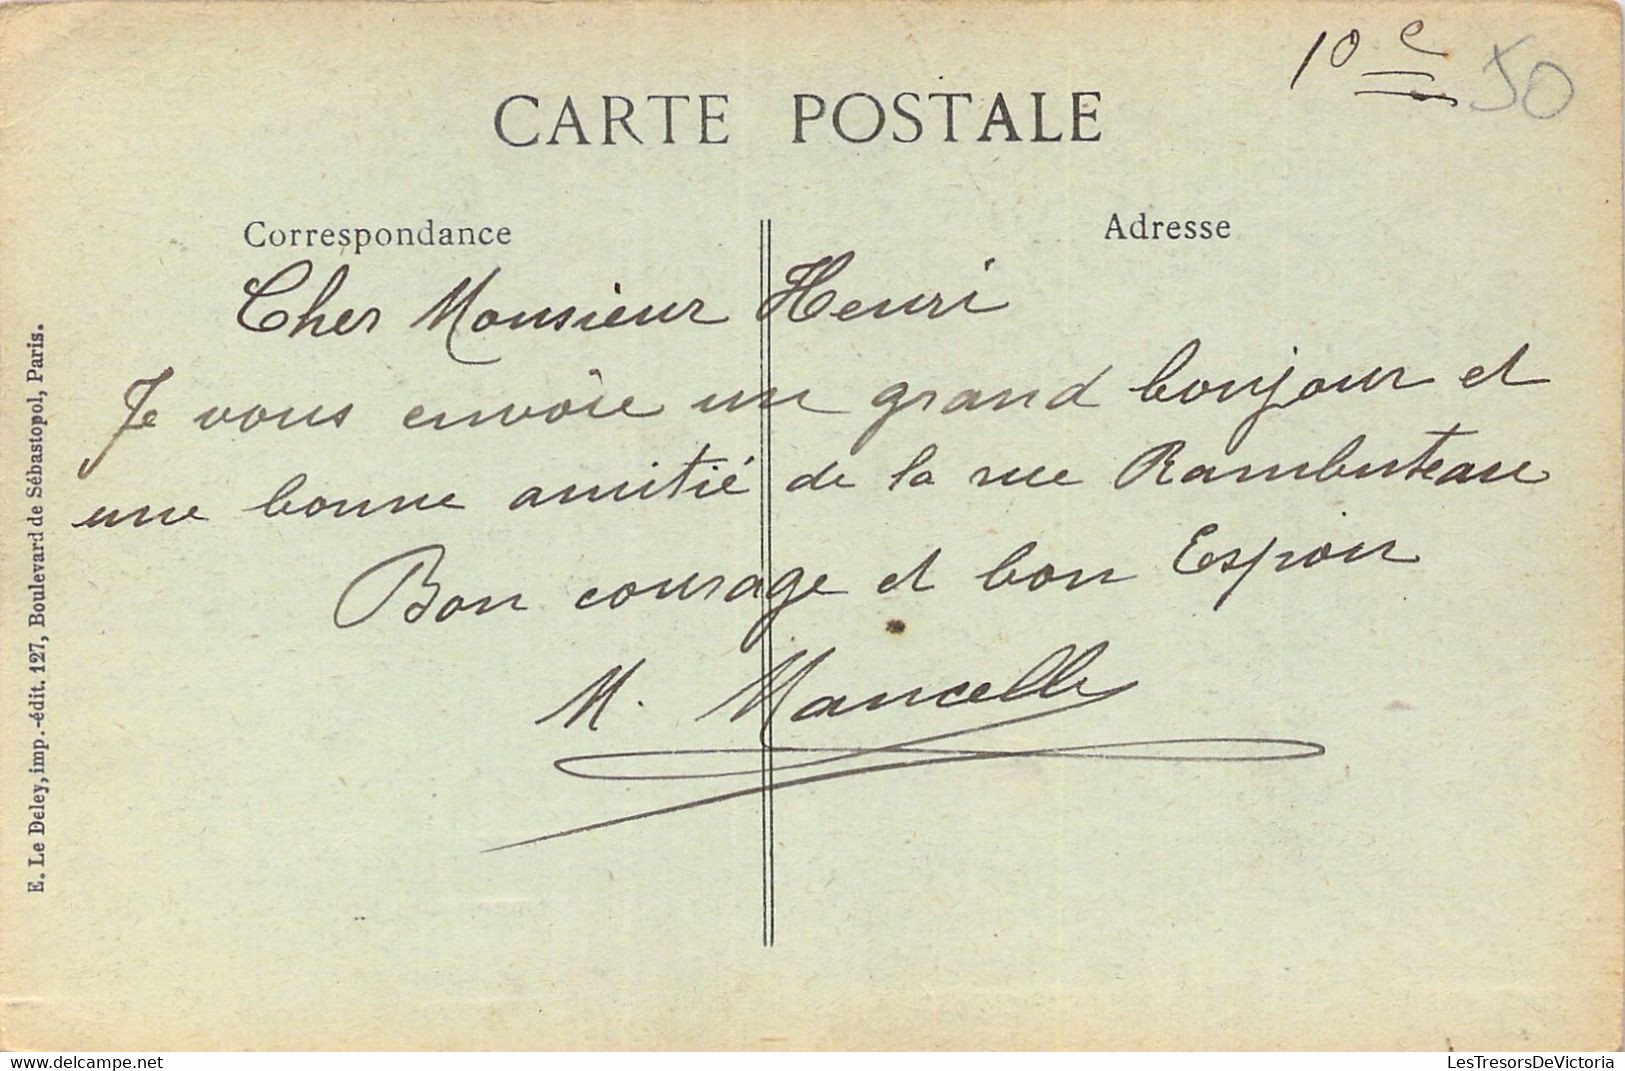 10 e 50
CARTE POSTALE
Correspondance
Adresse
Cher Monsieur Henri
Je vous envoie un grand bonjour et
une bonne amitié de la rue Rambuteau
Bon courage et bon Espoir
M. Marcelle
E. Le Deley, imp.-édit. 127, Boulevard de Sébastopol, Paris.
www.delcampe.net
LesTresorsDeVictoria